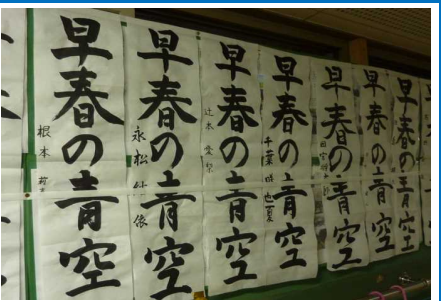 早春の青空
根本
早春の青空
永松
早春の青空
辻本
早春の青空
千葉
早春の青空
早春の青空
早春の青空
早春の青空